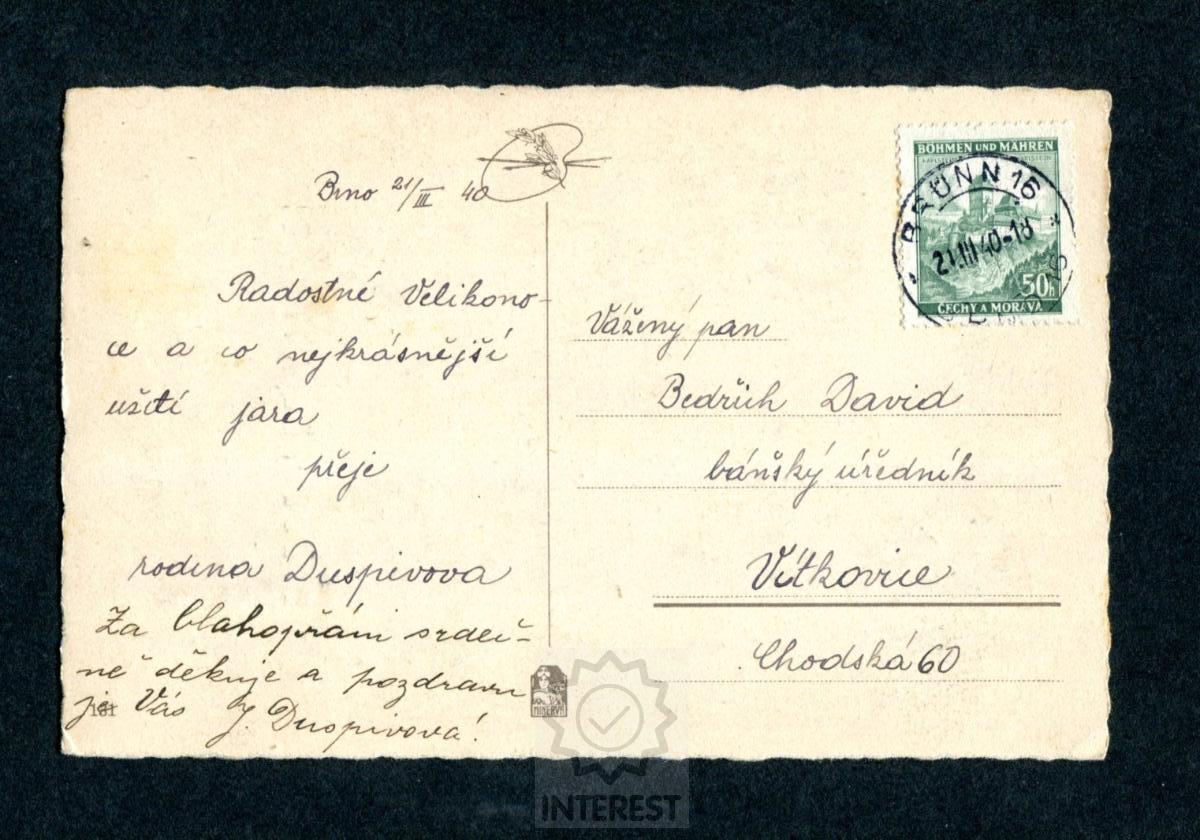 Brno 21/III 40
Radostné Velikono-
ce a co nejkrásnější
užití jara
přeje
rodina Duspivova
Za blahopřání srdeč-
ně děkuje a pozdravu
je Vás J. Duspivová!
181
MINERVA
BÖHMEN UND MÄHREN
BRÜNN 16
21.III 40-18
50h
ČECHY A MORAVA
Vážený pan
Bedřich David
báňský úředník
Vítkovice
Chodská 60
INTEREST